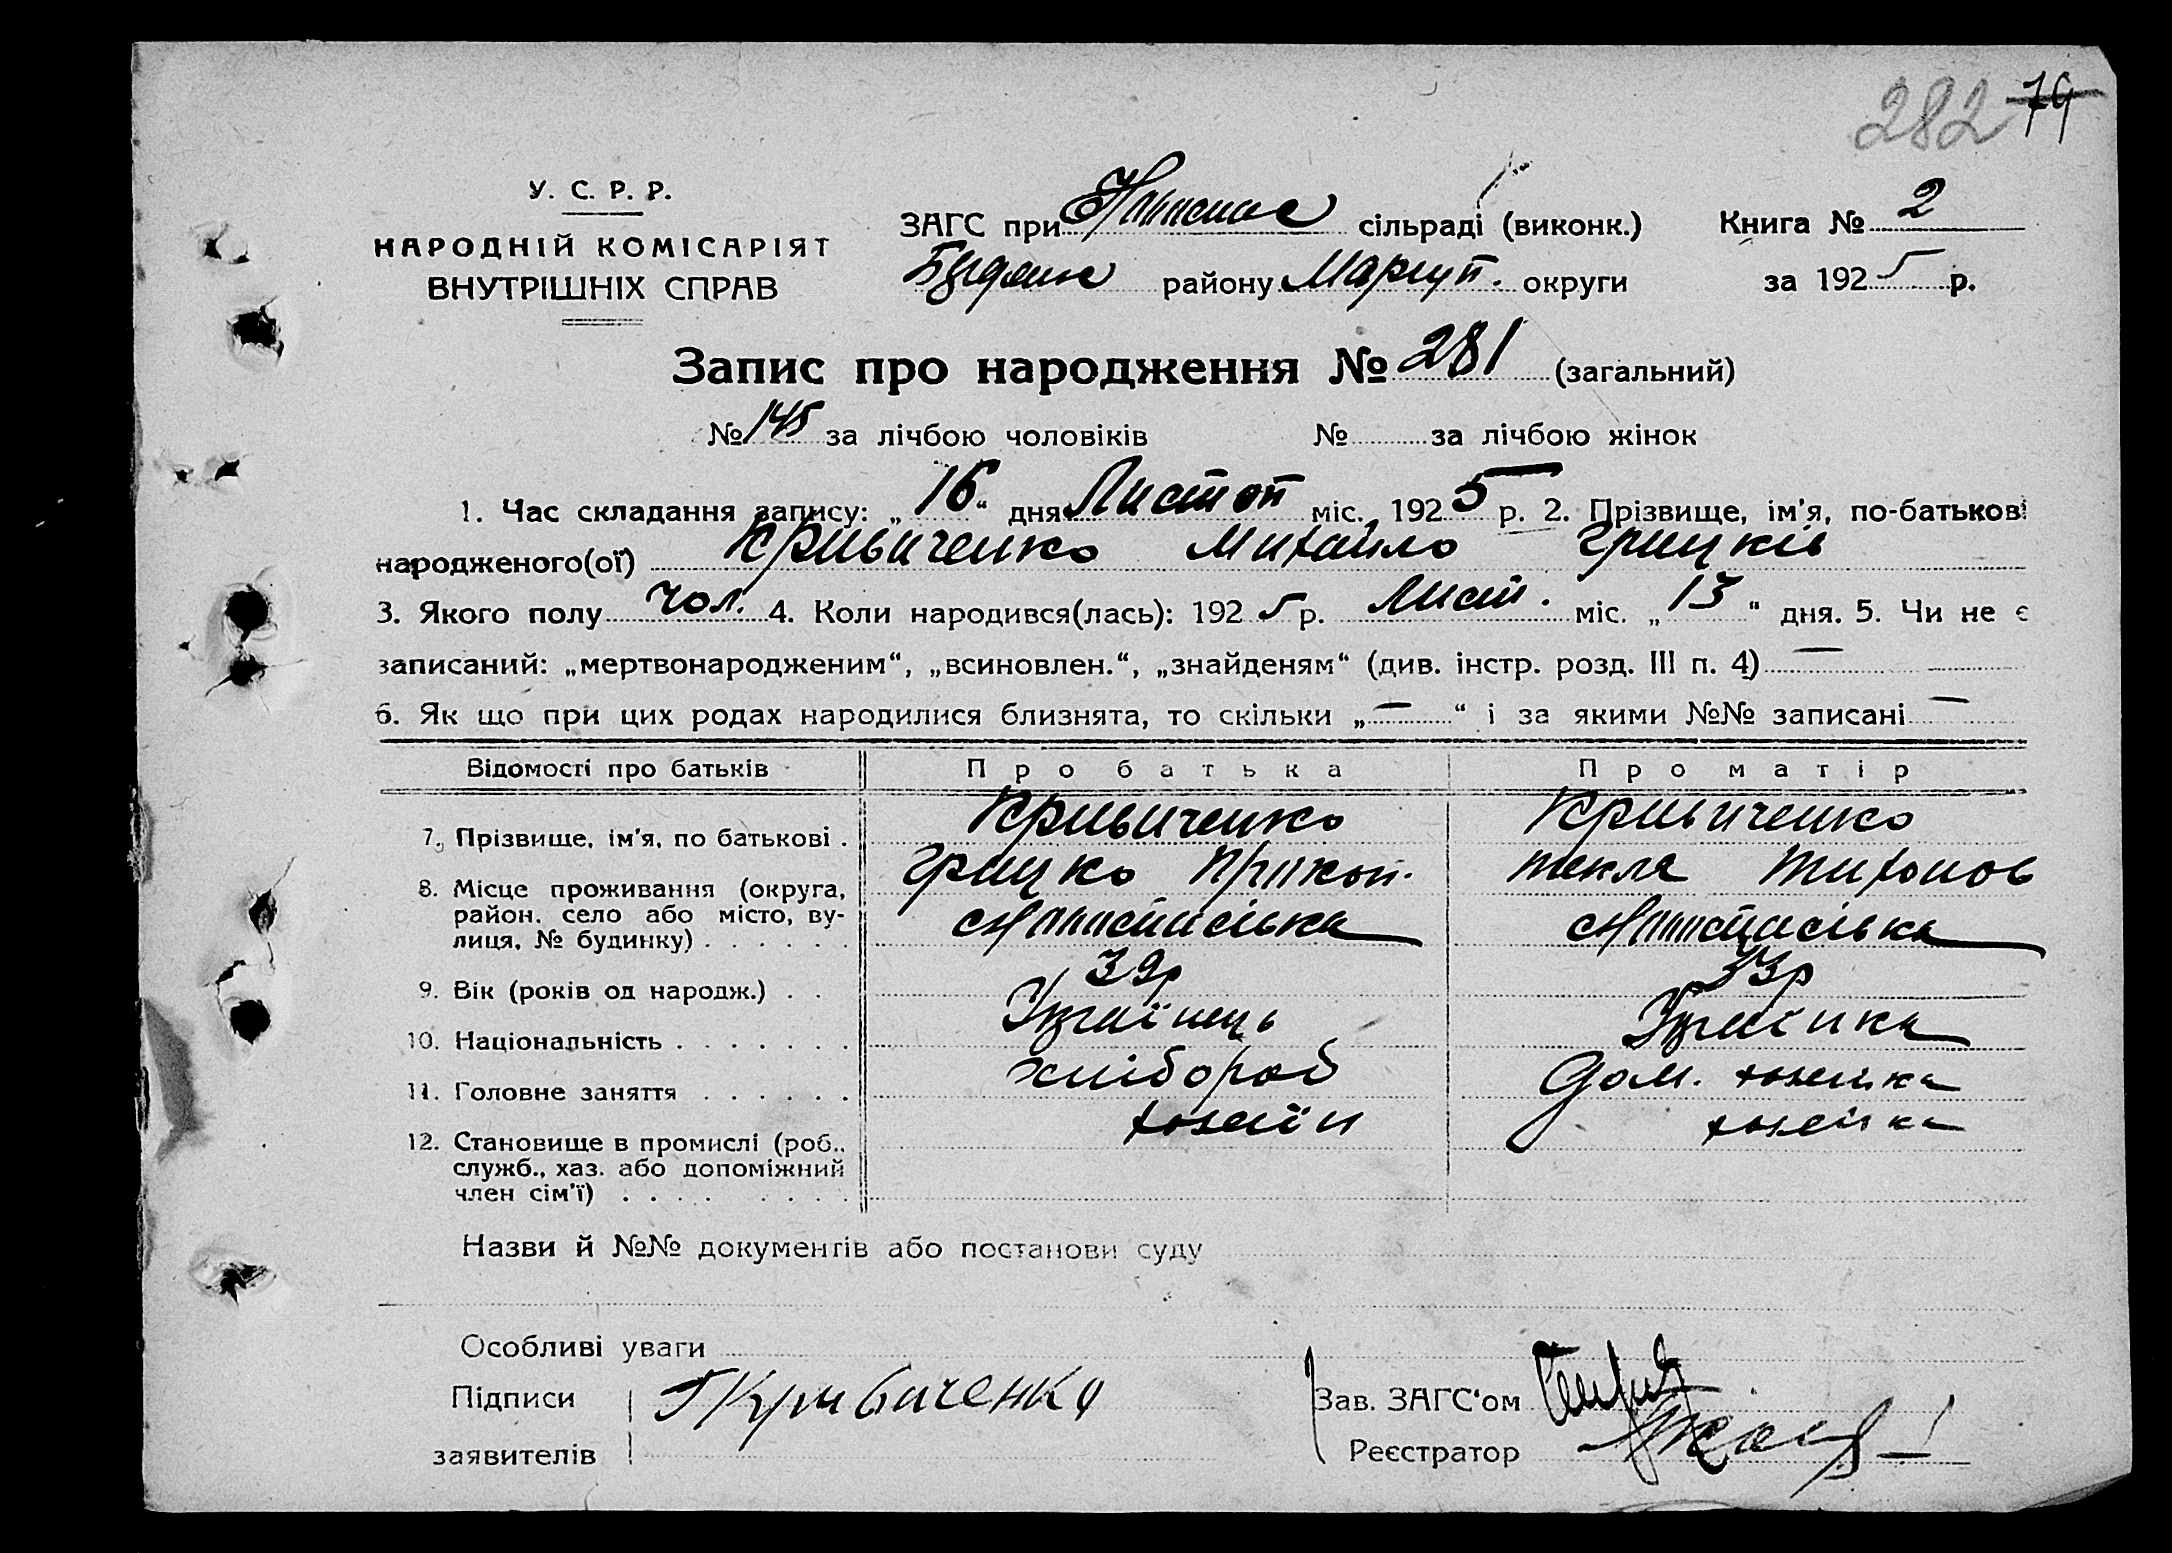 282 79
У. С. Р. Р.
НАРОДНІЙ КОМІСАРІЯТ
ВНУТРІШНІХ СПРАВ
ЗАГС при сільраді (виконк.) Книга № 2
району Маріуп. округи за 1925 р.
Запис про народження № 281 (загальний)
№ 145 за лічбою чоловіків № за лічбою жінок
1. Час складання запису: „16“ дня Листоп міс. 1925 р. 2. Прізвище, ім'я, по-батькові
народженого(ої) Кривиченко Михайло Грицків
3. Якого полу чол. 4. Коли народився(лась): 1925 р. Лист. міс. „13“ дня. 5. Чи не є
записаний: „мертвонародженим“, „всиновлен.“, „знайденям“ (див. інстр. розд. III п. 4) —
6. Як що при цих родах народилися близнята, то скільки „—“ і за якими №№ записані —
Відомості про батьків Про батька Про матір
7. Прізвище, ім'я, по батькові . Кривиченко Кривиченко
Грицко Прокоп. Текля Тихонов
8. Місце проживання (округа,
район, село або місто, ву-
лиця, № будинку) . . . . . .
9. Вік (років од народж.) . . 39р 33р
10. Національність . . . . . . . Українець Українка
11. Головне заняття . . . . . . хлібороб Дом. хозяйка
12. Становище в промислі (роб., хозяїн хозяйка
служб., хаз. або допоміжний
член сім'ї) . . . . . . . .
Назви й №№ документів або постанови суду
Особливі уваги
Підписи Г Кривиченко Зав. ЗАГС'ом
заявителів Реєстратор